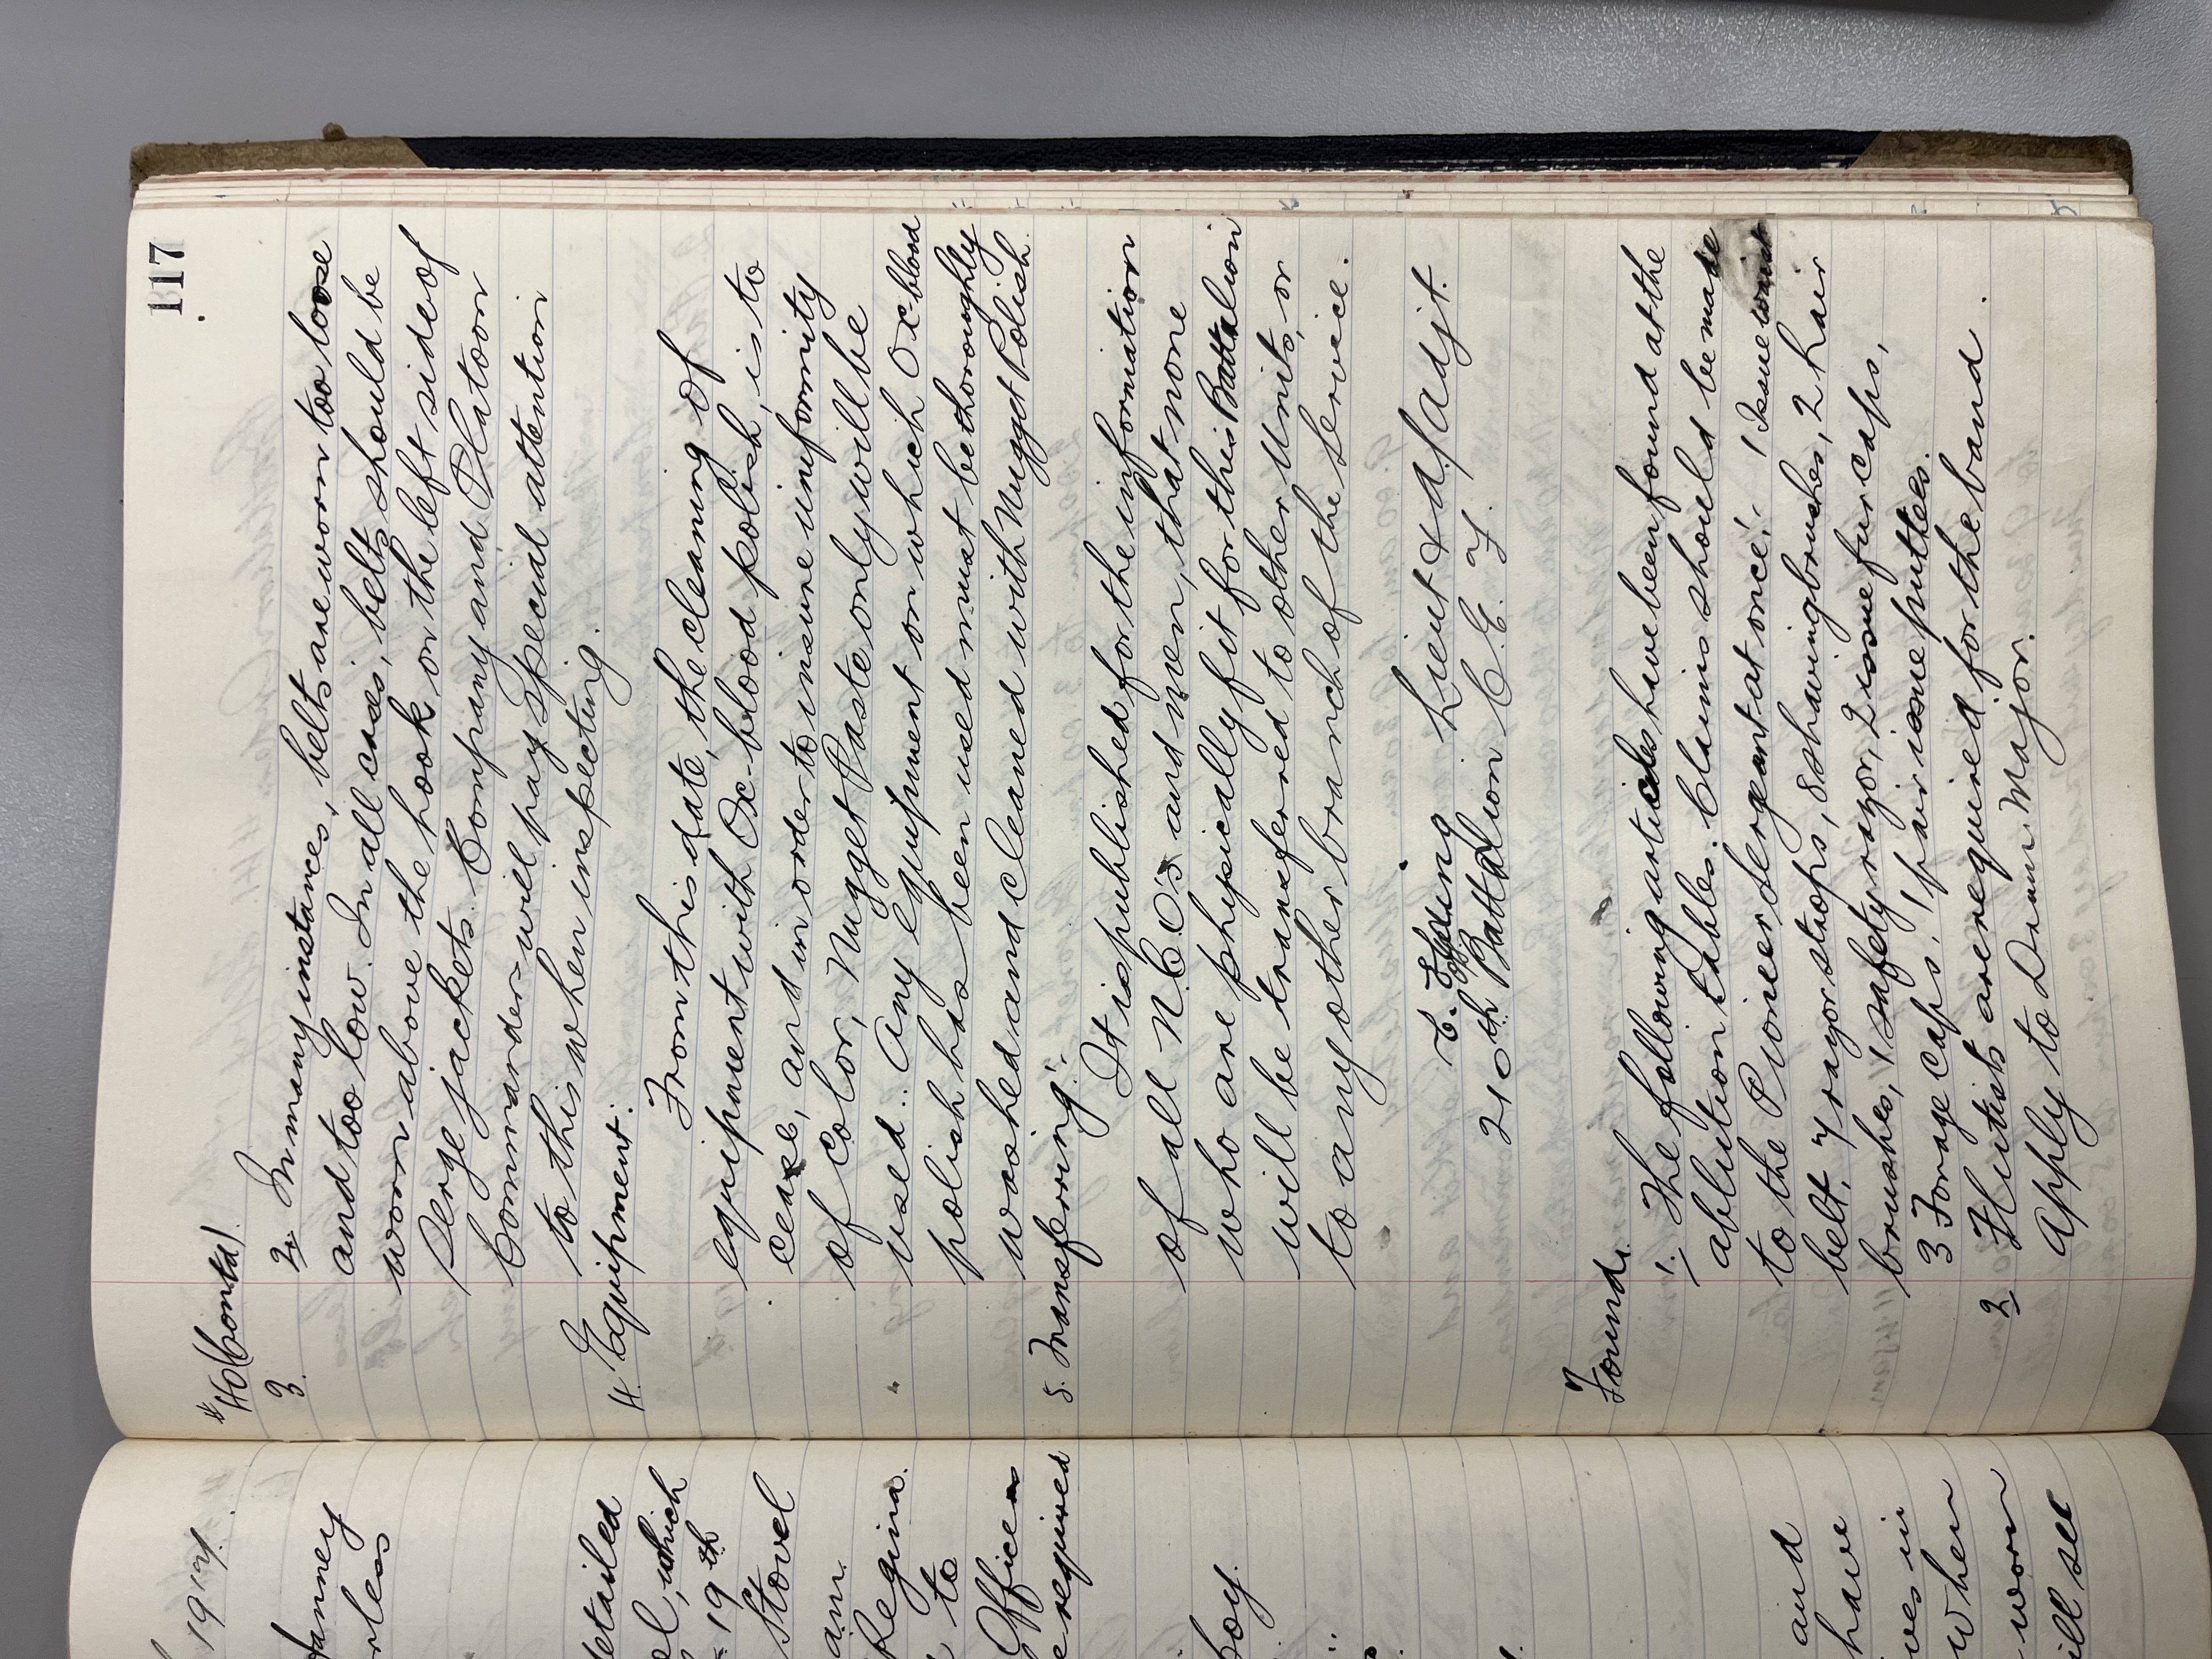 117
#40 (Contd).
3. 2. In many instances, belts are worn too loose
and too low. In all cases, belts should be
worn above the hook on the left side of
Serge jackets. Company and Platoon
Commanders will pay special attention
to this when inspecting.
4. Equipment.
From this date, the cleaning of
equipment with Ox-blood polish, is to
cease, and in order to insure uniformity
of color, Nugget Paste only will be
used. Any equipment on which Ox-blood
polish has been used must be thoroughly
washed and cleaned with Nugget Polish.
5. Transferring:-
It is published for the information
of all N.C.O's and men, that none
who are physically fit for this Battalion
will be transferred to other Units, or
to any other branch of the service.
Lieut & a/adjt.
210th Battalion C.E.F.
Found.
1. The following articles have been found at the
ablution tables. Claims should be made
to the Pioneer Sergeant at once:- 1 Issue waist
belt, 7 razor strops, 8 shaving brushes, 2 hair
brushes, 1 safety razor, 2 issue fur caps,
3 Forage caps, 1 pair issue puttees.
2 Flutists are required for the band.
Apply to Drum Major.
detailed
which
19th
Stovel
Regina.
to
Officers
required
and
have
in
when
worn
will see